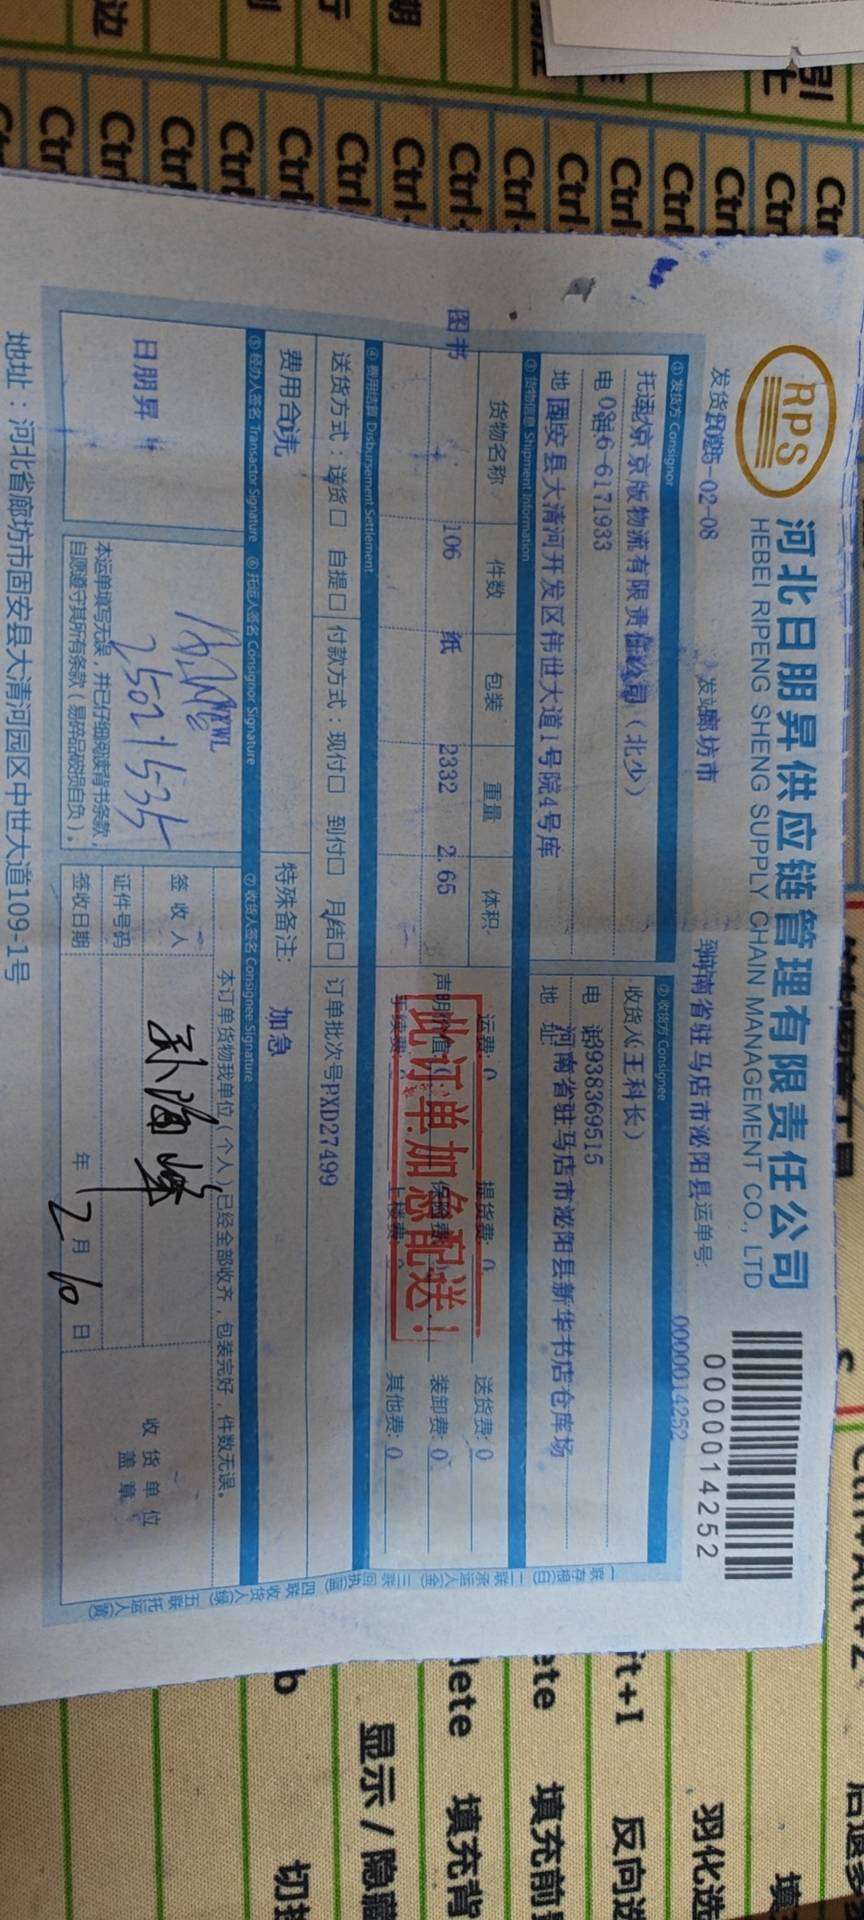 RPS
河北日朋昇供应链管理有限责任公司
HEBEI RIPENG SHENG SUPPLY CHAIN MANAGEMENT CO., LTD
0000014252
0000014252
发货 -02-08
发站 廊坊市
河南省驻马店市泌阳县 运单号:
① 发货方 Consignor
京版物流有限责任公司(北少)
电 6-6171933
地 固安县大清河开发区伟世大道1号院4号库
② 收货方 Consignee
收货人(王科长)
电 938369515
地 址 河南省驻马店市泌阳县新华书店仓库场
③ 货物信息 Shipment Information
货物名称 件数 包装 重量 体积
图书 106 纸 2332 2.65
运费: 0 提货费: 0 送货费: 0
声明价值 保险费: 装卸费: 0
手续费: 上楼费: 0 其他费: 0
此订单加急配送!
④ 费用结算 Disbursement Settlement
送货方式:送货□ 自提□ 付款方式:现付□ 到付□ 月结□ 订单批次号PXD27499
费用合计
特殊备注: 加急
⑤ 经办人签名 Transactor Signature ⑥ 托运人签名 Consignor Signature ⑦ 收货人签名 Consignee Signature
日朋昇
本运单填写无误,并已仔细阅读背书条款,
自愿遵守其所有条款(易碎品破损自负)。
本订单货物我单位(个人)已经全部收齐,包装完好,件数无误。
签 收 人
证件号码
签收日期 年 2 月 10 日
收 货 单 位
盖 章
地址:河北省廊坊市固安县大清河园区中世大道109-1号
一联存根(白) 二联承运人(金) 三联回执(蓝) 四联收货人(绿) 五联托运人(黄)
显示/隐藏
填充背
填充前
反向选
羽化选
Ctrl+Alt+Z